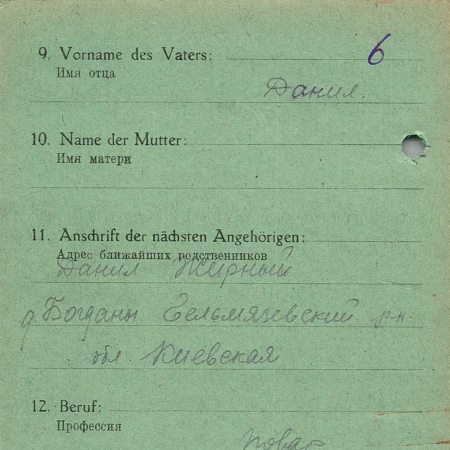 6
9. Vorname des Vaters:
Имя отца
Данил.
10. Name der Mutter:
Имя матери
11. Anschrift der nächsten Angehörigen:
Адрес ближайших родственников
Данил Жирный
д. Богданы Гельмязевский р-н.
обл. Киевская
12. Beruf:
Профессия
повар